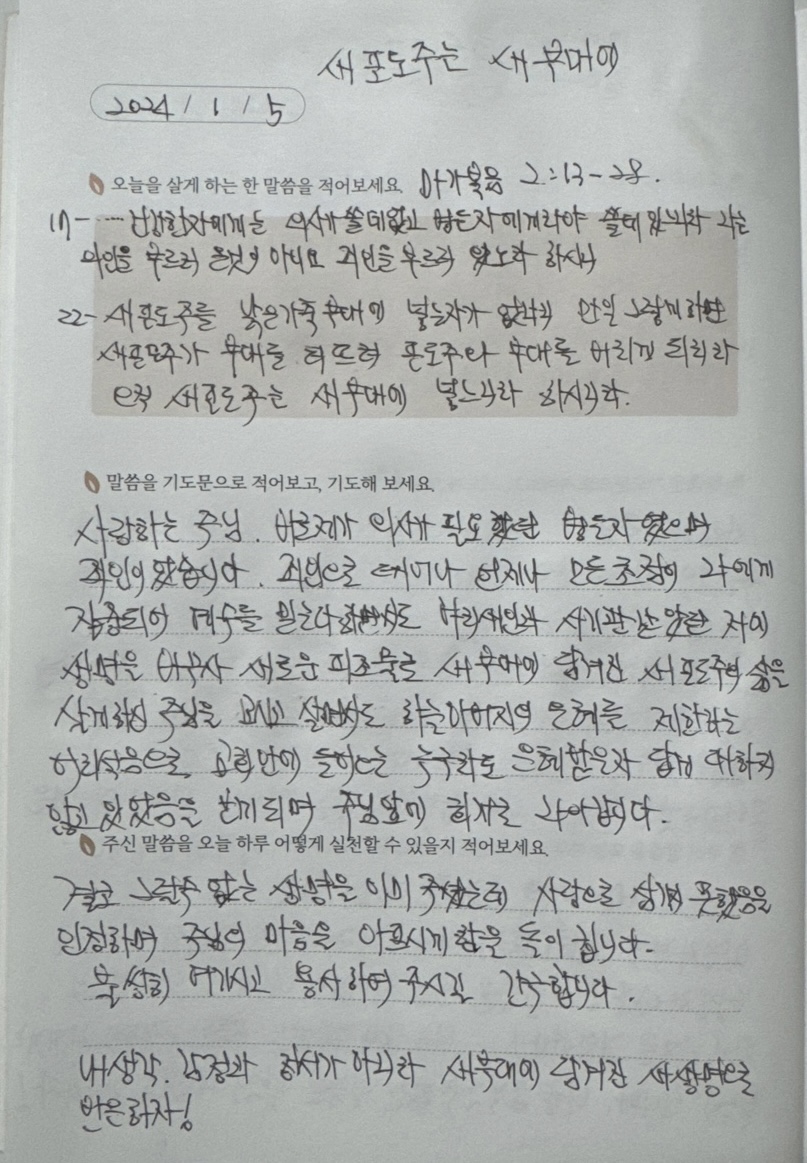 새 포도주는 새 부대에
2024 / 1 / 5
오늘을 살게 하는 한 말씀을 적어보세요. 마가복음 2:13-28.
17- ···· 건강한자에게는 의사가 쓸데없고 병든자에게라야 쓸데 있느니라 나는
의인을 부르러 온것이 아니요 죄인을 부르러 왔노라 하시니
22- 새포도주를 낡은가죽부대에 넣는자가 없나니 만일 그렇게하면
새포도주가 부대를 터뜨려 포도주와 부대를 버리게 되리라
오직 새포도주는 새부대에 넣느니라 하시니라.
말씀을 기도문으로 적어보고, 기도해 보세요.
사랑하는 주님. 바로제가 의사가 필요했던 병든자 였으며
죄인이었습니다. 죄인으로 태어나 언제나 모든초점이 나에게
집중되어 예수를 믿는다하면서도 바리새인과 서기관같았던 자의
생명을 바꾸사 새로운 피조물로 새부대에 담겨진 새포도주의 삶을
살게하신 주님을 모시고 살면서도 하늘아버지의 은혜를 제한하는
어리석음으로, 교회안에 들어오는 누구라도 은혜받은자 답게 대하지
않고 있었음을 깨닫게되며 주님앞에 회개로 나아갑니다.
주신 말씀을 오늘 하루 어떻게 실천할 수 있을지 적어보세요.
결코 그럴수 없는 생명을 이미 주셨는데 사랑으로 섬기지 못했음을
인정하며 주님의 마음을 아프시게함을 돌이킵니다.
불쌍히 여기시고 용서하여주시길 간구합니다.
내생각. 감정과 의지가 아니라 새부대에 담겨진 새생명으로
반응하자!